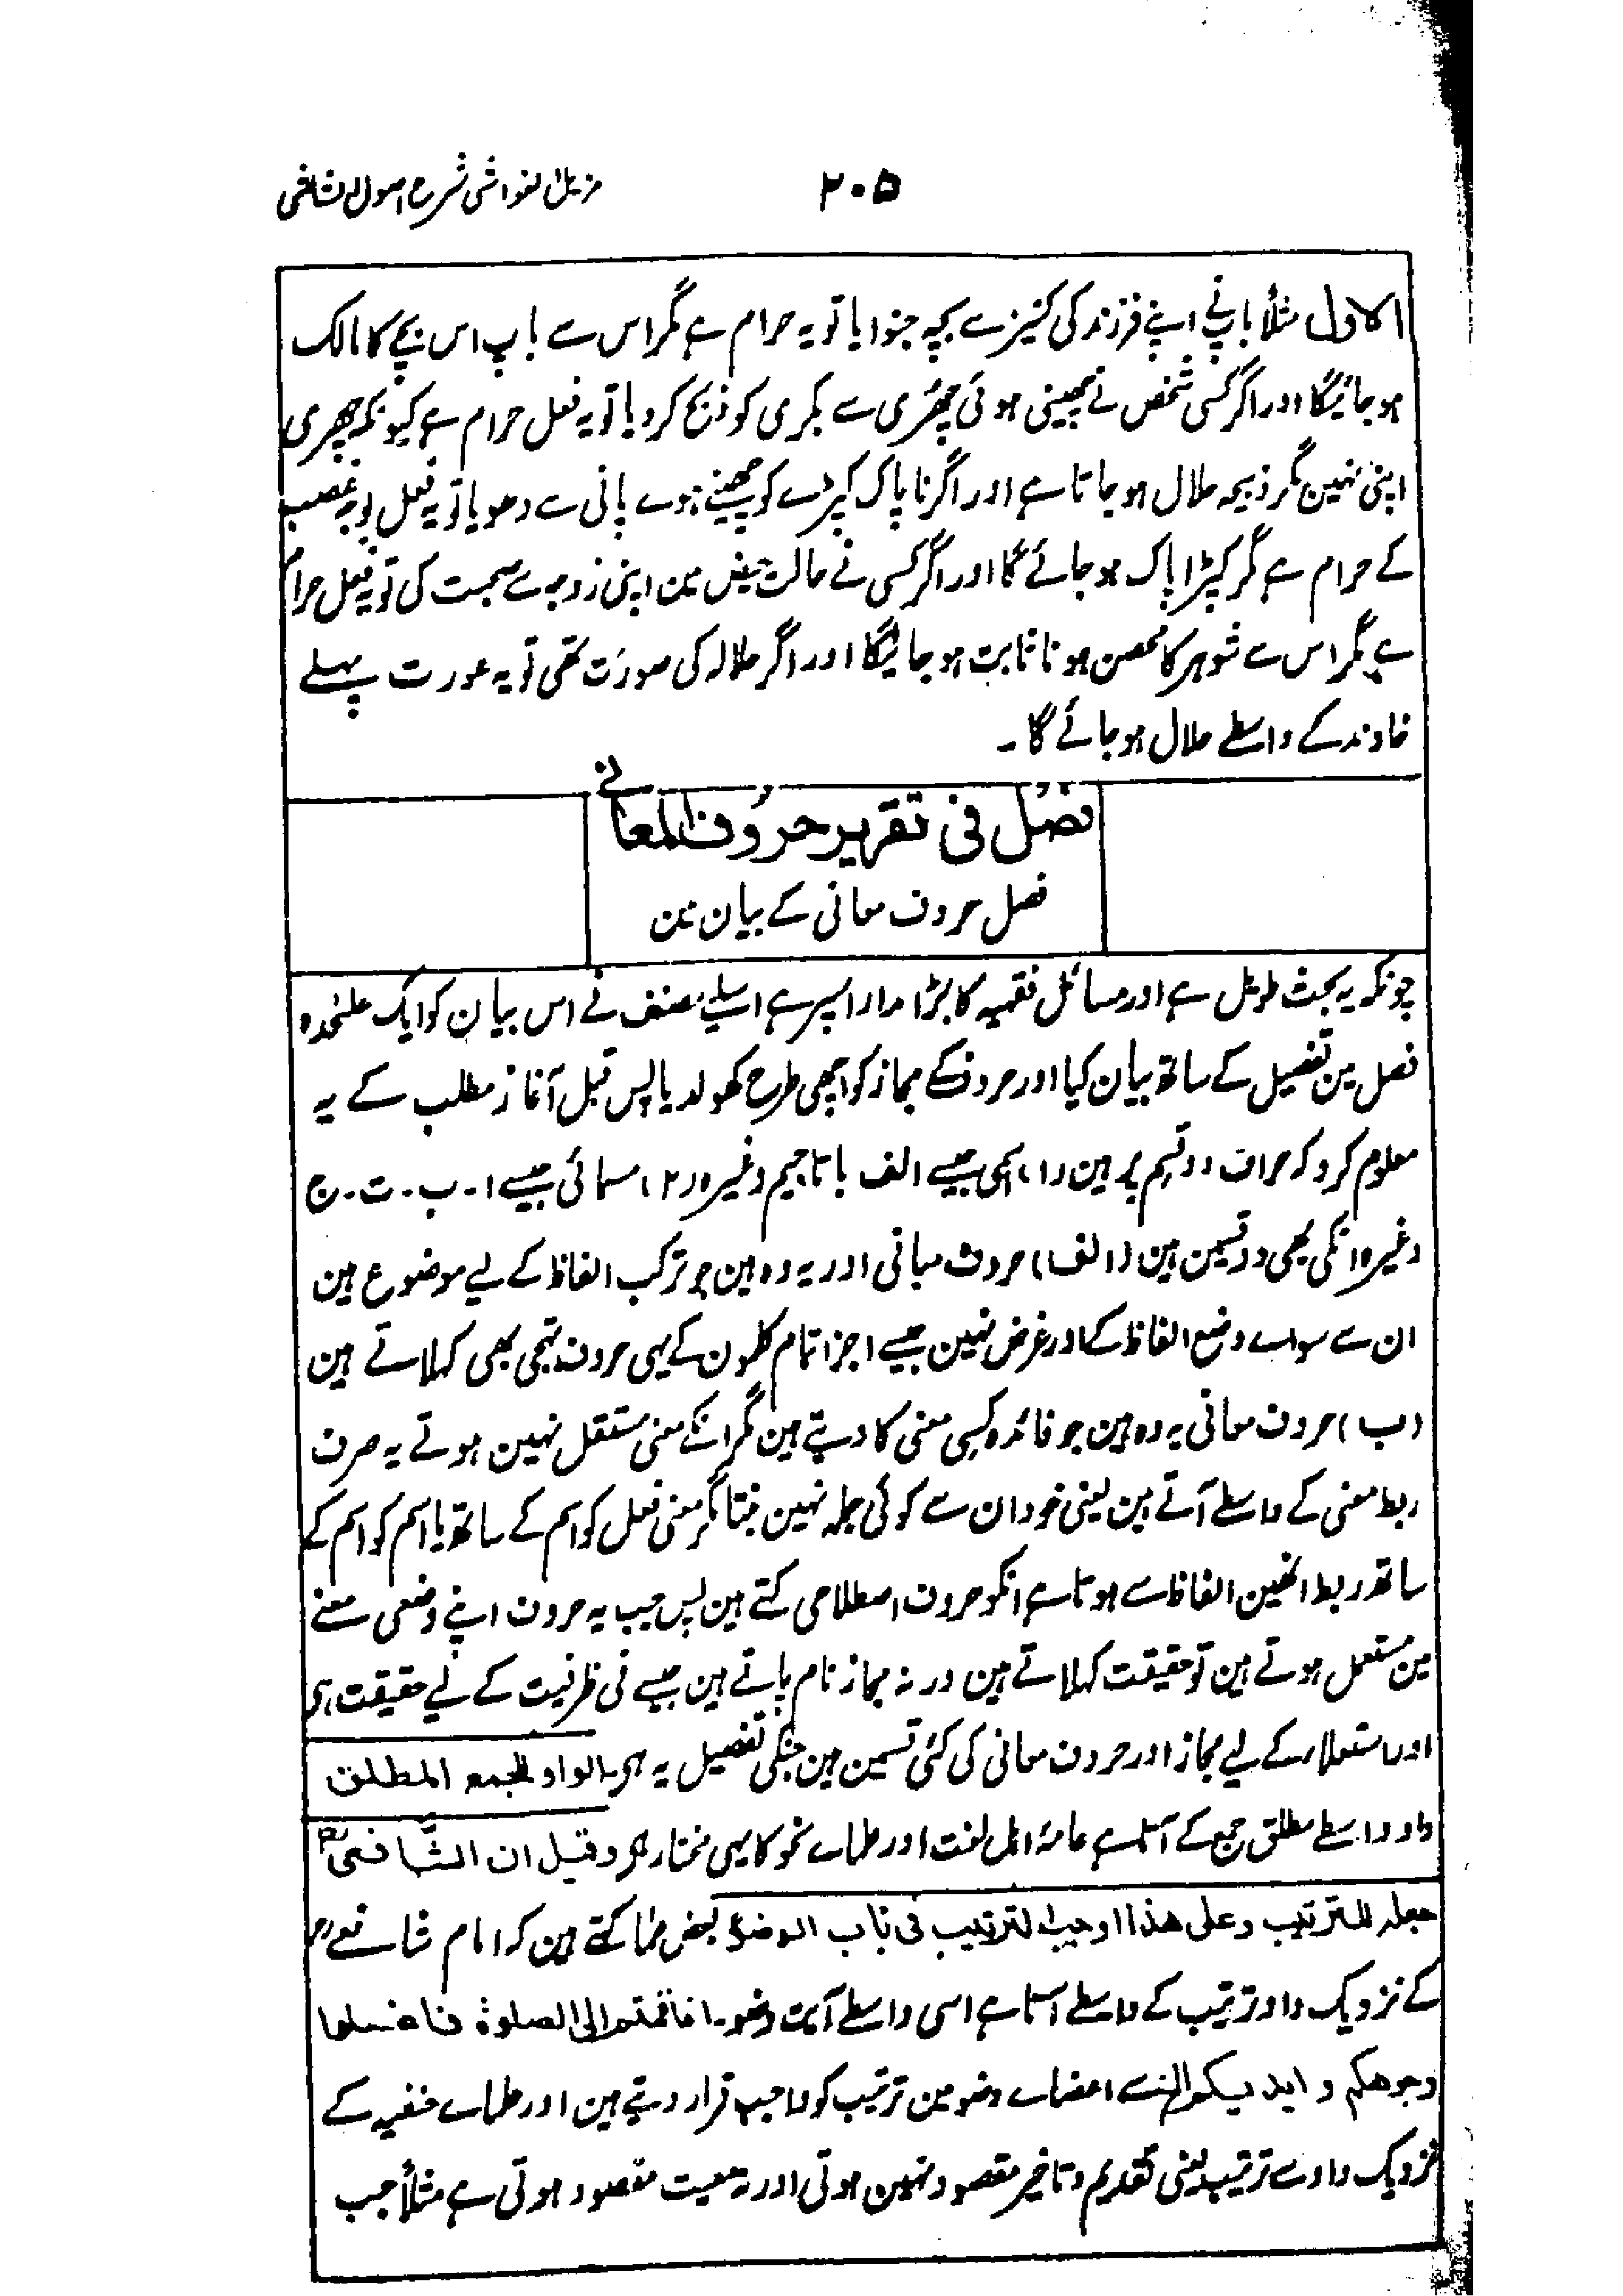 مزیل الغواشی شرح اصول الشاشی
۲۰۵
الاول مثلاً باپنے اپنے فرزند کی کنیز سے بچہ جنوایا تو یہ حرام ہے مگر اس سے باپ اس بچے کا مالک
ہو جائیگا اور اگر کسی شخص نے چھینی ہوئی چھُری سے بکری کو ذبح کر دیا تو یہ فعل حرام ہے کیونکہ چھری
اپنی نہین مگر ذبیحہ حلال ہو جاتا ہے اور اگر ناپاک کپڑے کو چھینے ہوے پانی سے دھویا تو یہ فعل بوجہ غصب
کے حرام ہے مگر کپڑا پاک ہو جائے گا اور اگر کسی نے حالت حیض مین اپنی زوجہ سے صحبت کی تو یہ فعل حرام
ہے مگر اس سے شوہر کا محصن ہونا ثابت ہو جائیگا اور اگر حلالہ کی صورت تھی تو یہ عورت پہلے
خاوند کے واسطے حلال ہو جائے گا۔
فصل فی تقریر حروف المعانے
فصل حروف معانی کے بیان مین
چونکہ یہ بحث طویل ہے اور مسائل فقہیہ کا بڑا مدار اسپر ہے اسلیے مصنف نے اس بیان کو ایک علٰحدہ
فصل مین تفصیل کے ساتھ بیان کیا اور حروف کے مجاز کو اچھی طرح کھولدیا پس قبل آغاز مطلب کے یہ
معلوم کرو کہ حرف دو قسم پر ہین (۱) اسمی جیسے الف با تا جیم وغیرہ (۲) مسمائی جیسے ا۔ب۔ت۔ج
وغیرہ انکی بھی دو قسمین ہین (الف) حروف مبانی اور یہ وہ ہین جو ترکب الفاظ کے لیے موضوع ہین
ان سے سواے وضع الفاظ کے اور غرض نہین جیسے اجزا تمام کلمون کے یہی حروف تہجی بھی کہلاتے ہین
(ب) حروف معانی یہ وہ ہین جو فائدہ کسی معنی کا دیتے ہین مگر انکے معنی مستقل نہین ہوتے یہ صرف
ربط معنی کے واسطے آتے ہین یعنی خود ان سے کوئی جملہ نہین بنتا مگر معنی فعل کو اسم کے ساتھ یا اسم کو اسم کے
ساتھ ربط انھین الفاظ سے ہوتا ہے انکو حروف اصطلاحی کہتے ہین پس جب یہ حروف اپنے وضعی معنے
مین مستعمل ہوتے ہین تو حقیقت کہلاتے ہین ورنہ مجاز نام پاتے ہین جیسے فی ظرفیت کے لیے حقیقت ہی
اور استعلاء کے لیے مجاز اور حروف معانی کی کئی قسمین ہین جنکی تفصیل یہ ہی۔ الواو للجمع المطلق
واو واسطے مطلق جمع کے آتا ہے عامۂ اہل لغت اور علماے نحو کا یہی مختار ہی وقیل ان الشافعیؒ
جعلہ للترتیب وعلی ھذا اوجب الترتیب فی باب الوضوء بعض علما کہتے ہین کہ امام شافعےؒ
کے نزدیک واو ترتیب کے واسطے آتا ہے اسی واسطے آیت وضو۔اذا قمتم الی الصلوۃ فاغسلوا
وجوھکم و ایدیکم الخ سے اعضاے وضو مین ترتیب کو واجب قرار دیتے ہین اور علماے حنفیہ کے
نزدیک واو سے ترتیب یعنی تقدیم و تاخیر مقصود نہین ہوتی اور نہ معیت مقصود ہوتی ہے مثلاً جب